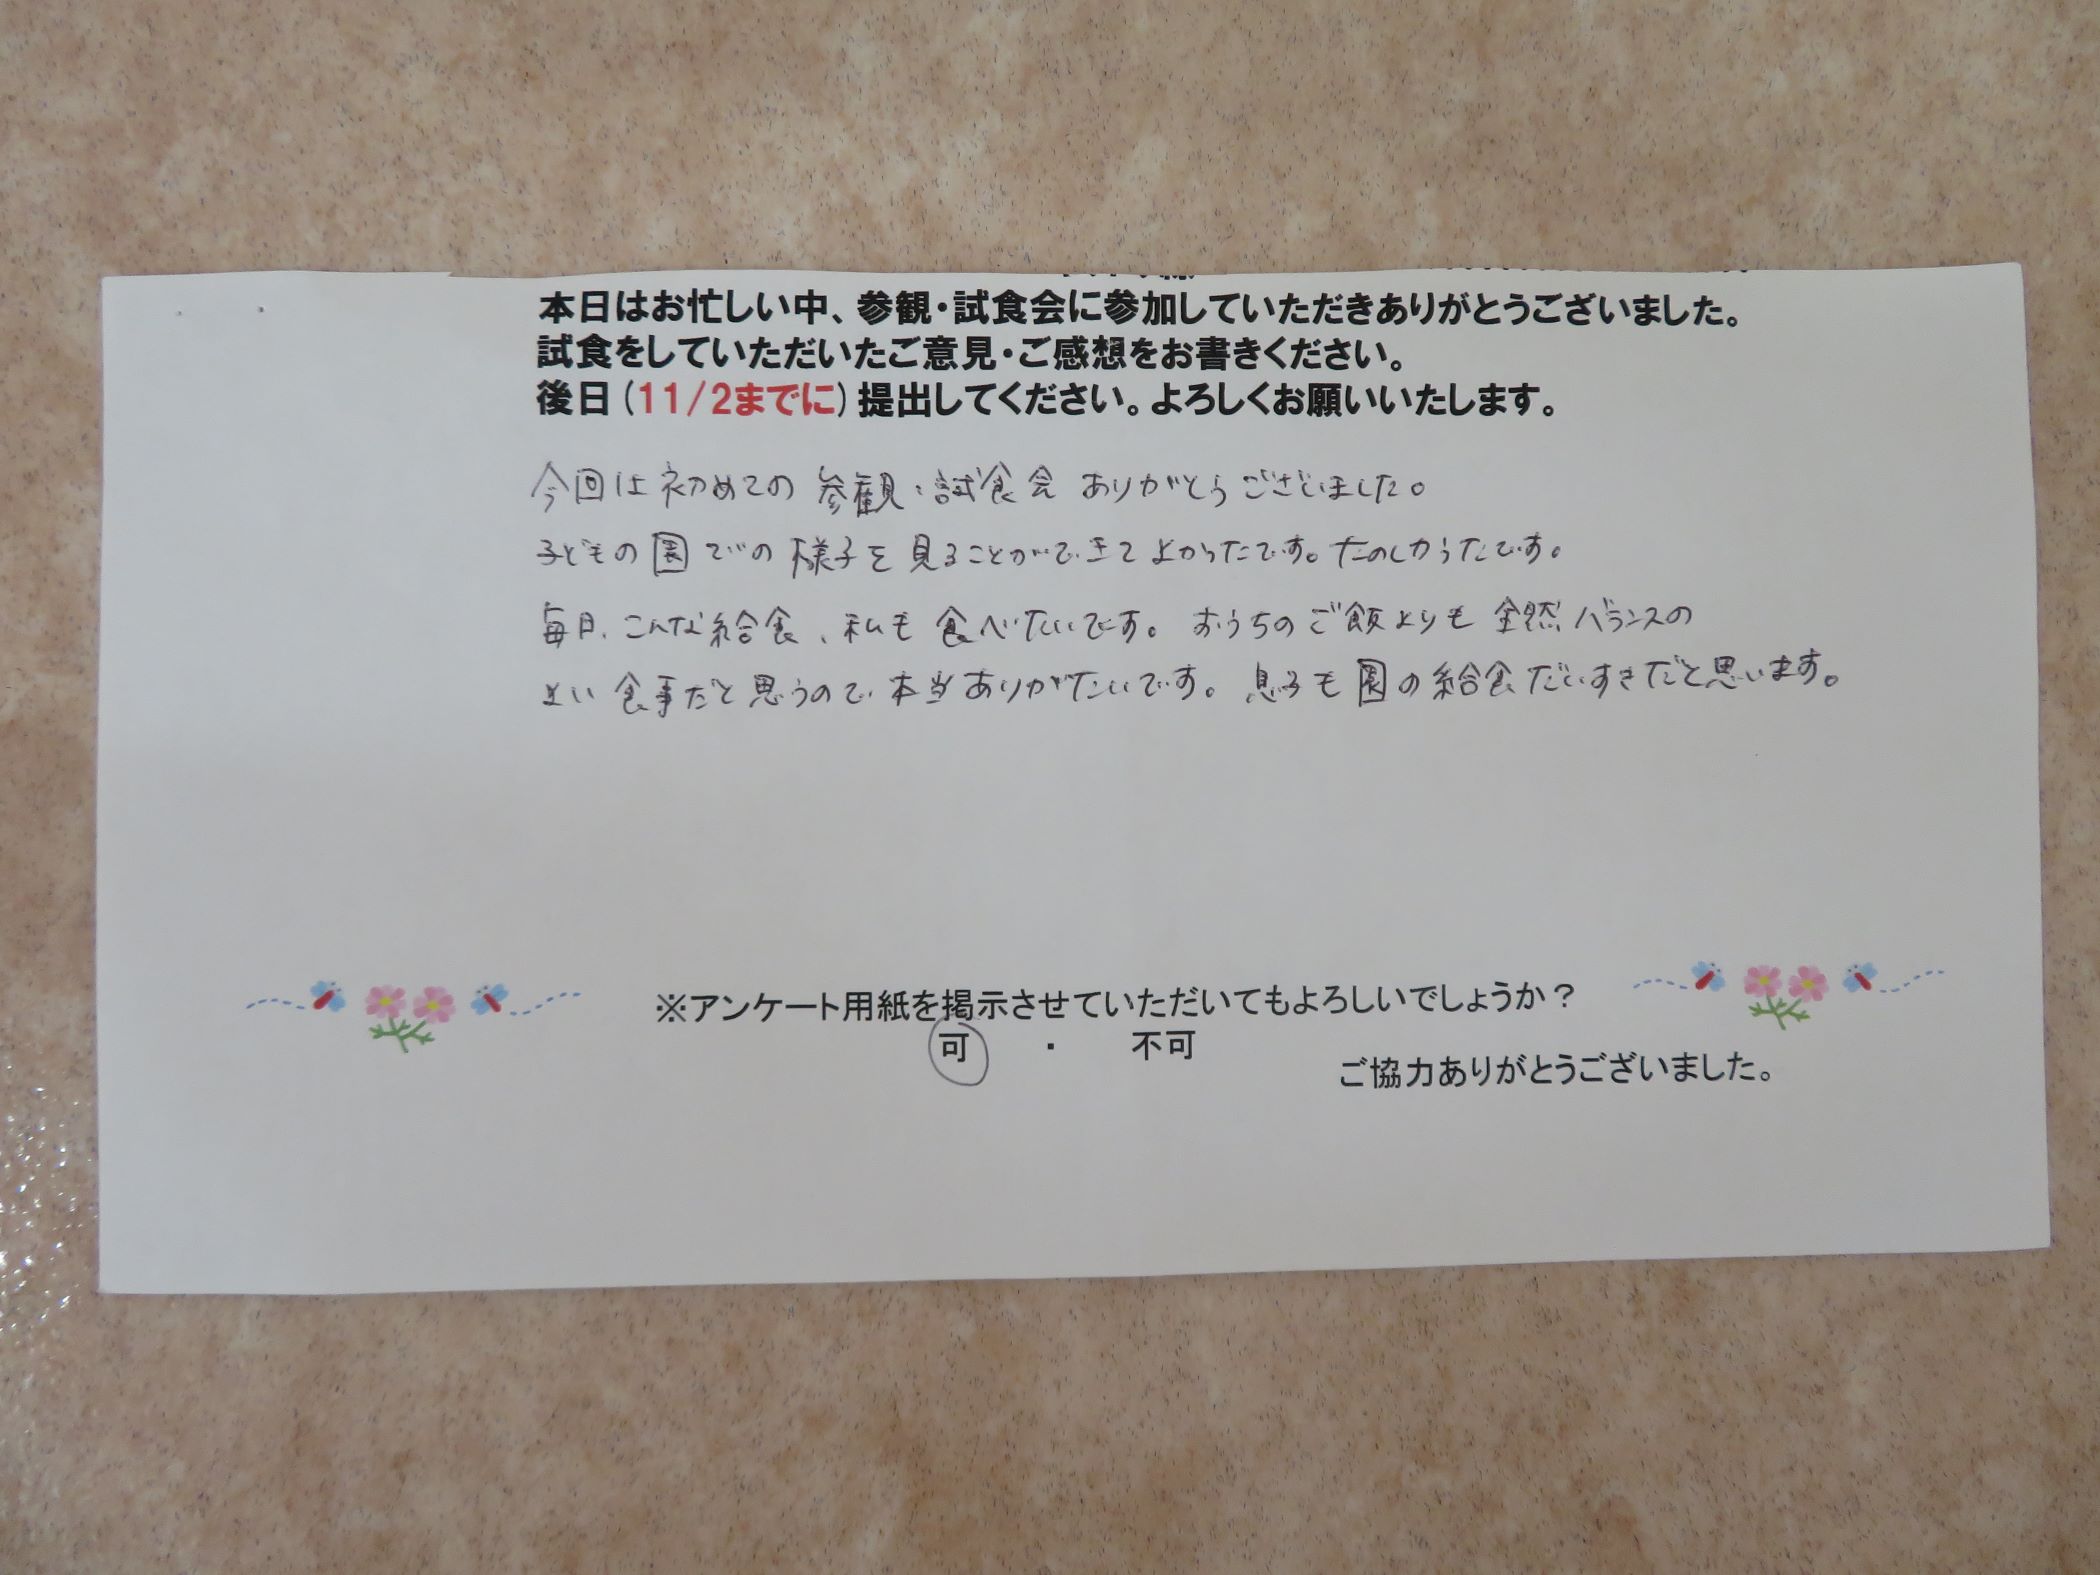 本日はお忙しい中、参観・試食会に参加していただきありがとうございました。
試食をしていただいたご意見・ご感想をお書きください。
後日(11/2までに)提出してください。よろしくお願いいたします。
今回は初めての参観・試食会ありがとうございました。
子どもの園での様子を見ることができてよかったです。たのしかったです。
毎日、こんな給食、私も食べたいです。おうちのご飯よりも全然バランスの
よい食事だと思うので本当ありがたいです。息子も園の給食だいすきだと思います。
※アンケート用紙を掲示させていただいてもよろしいでしょうか？
可 ・ 不可
ご協力ありがとうございました。